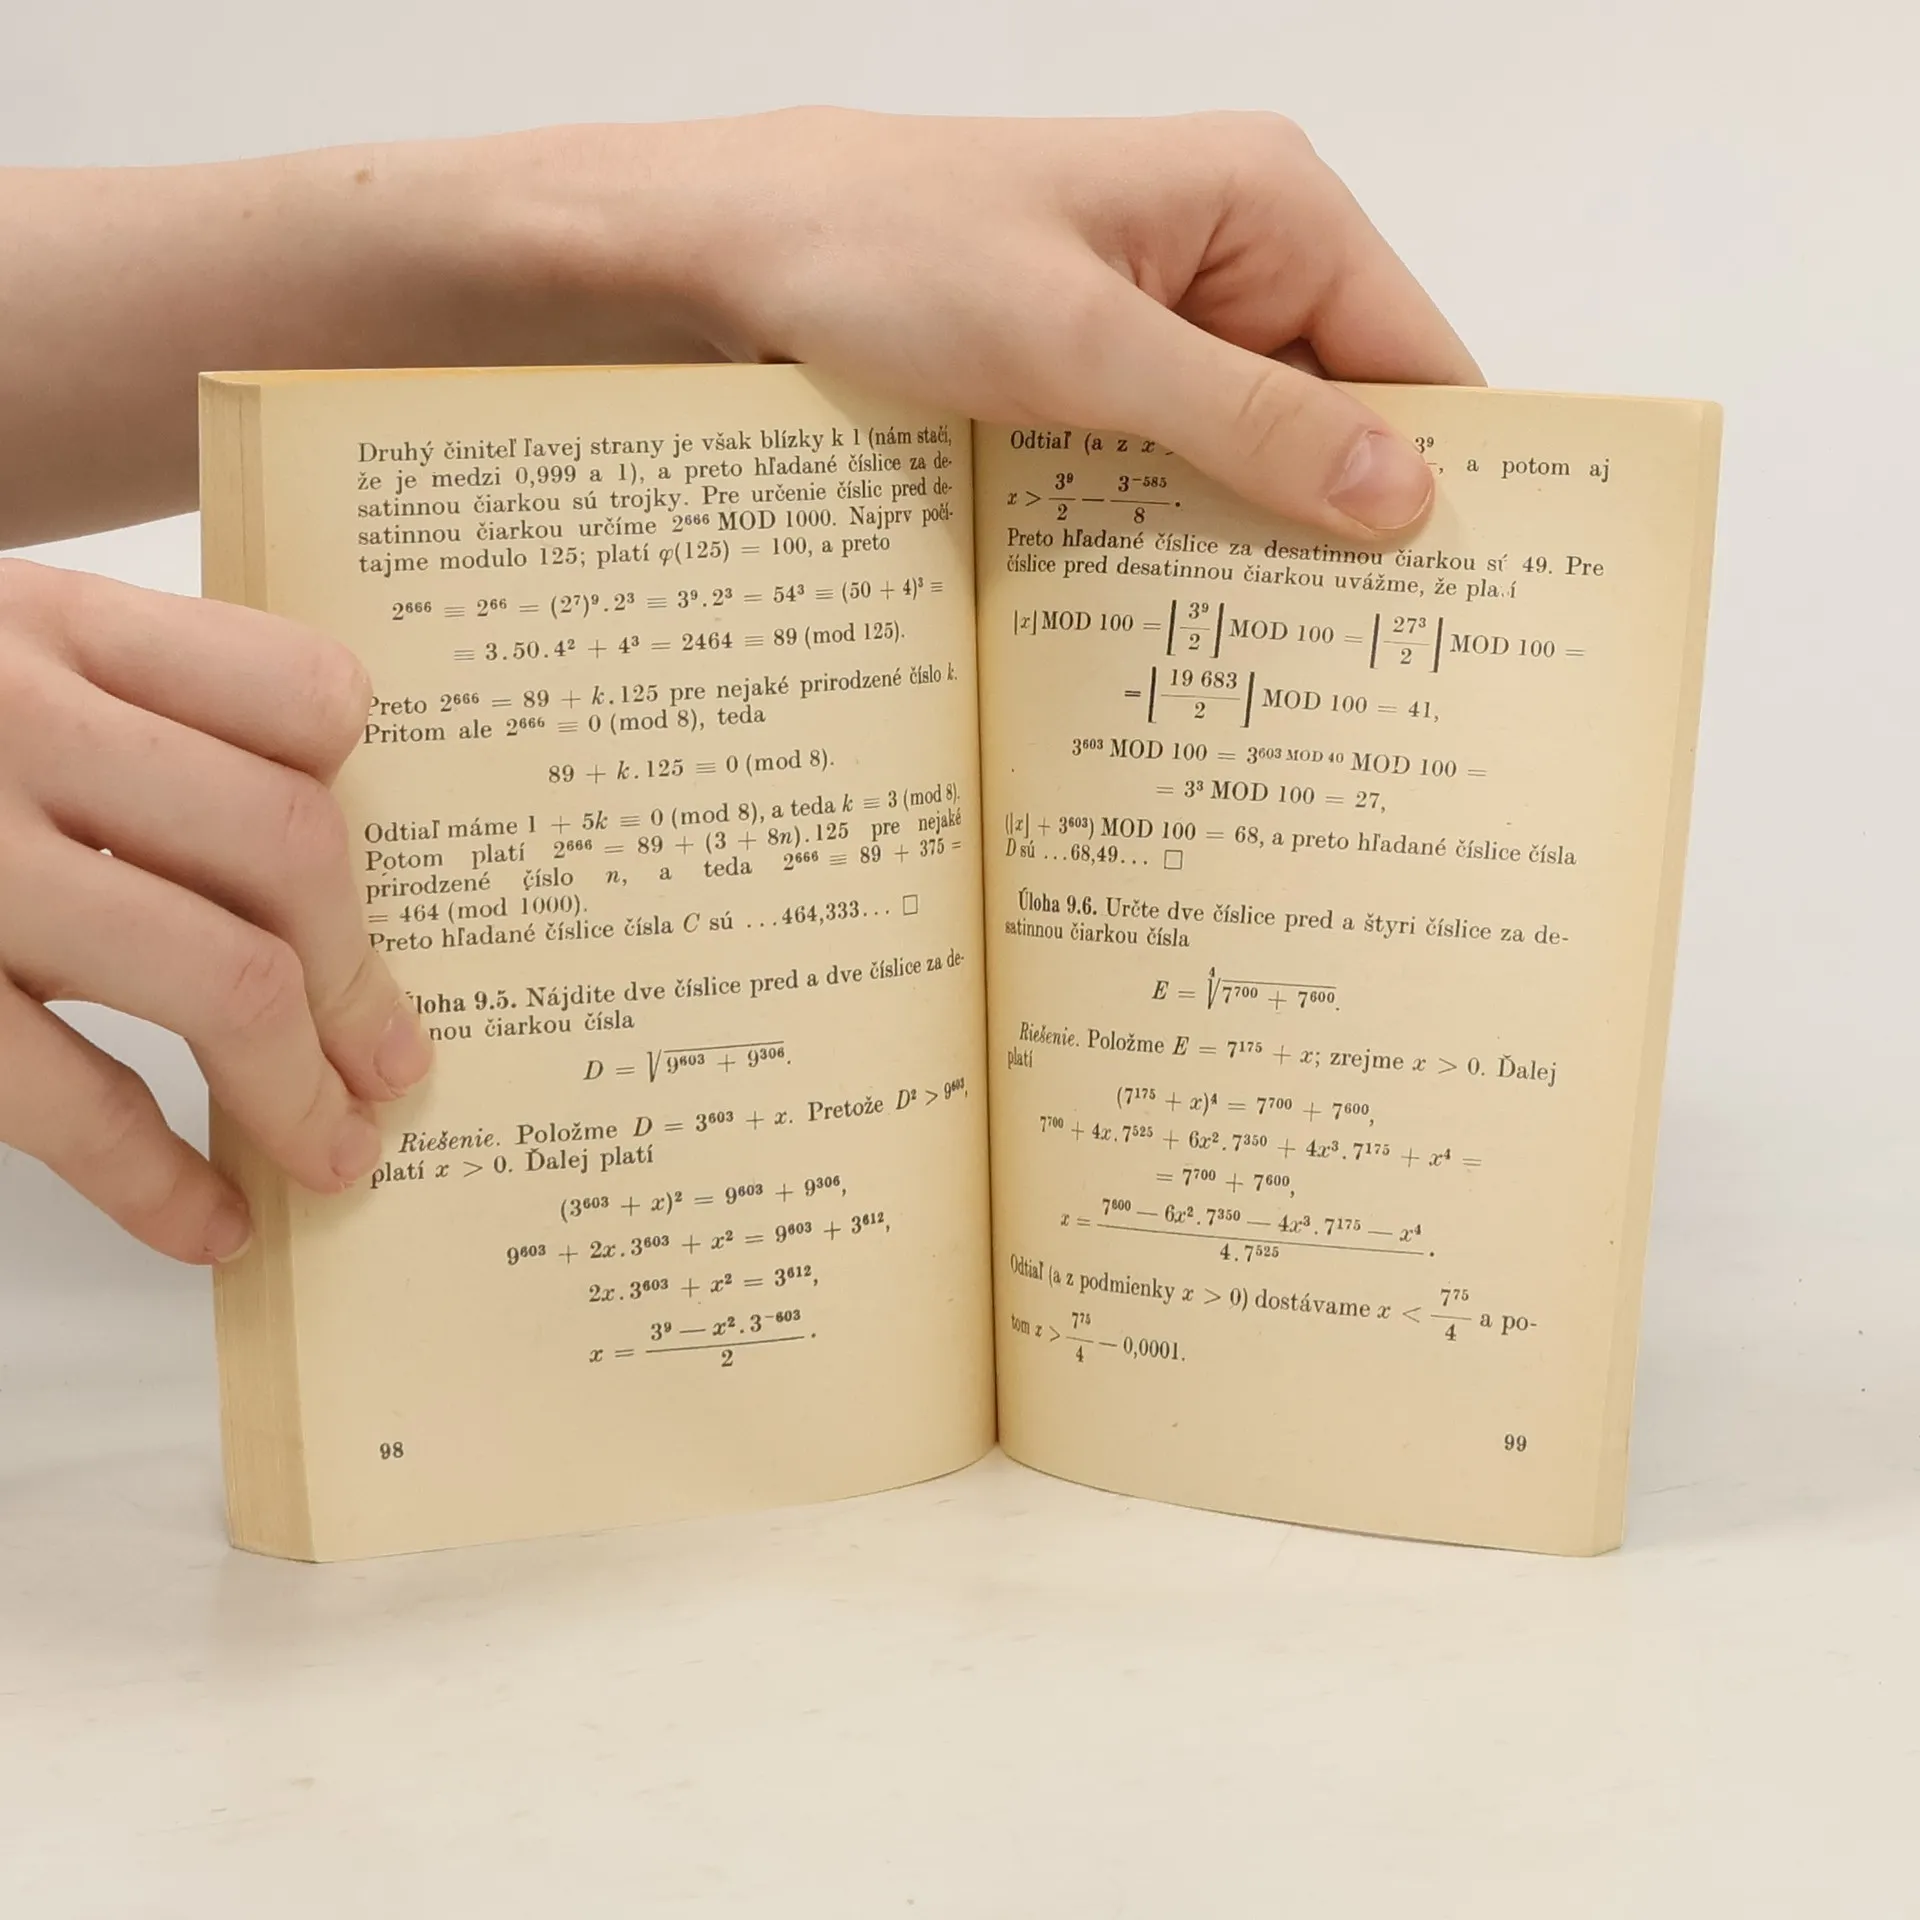 Druhý činiteľ ľavej strany je však blízky k 1 (nám stačí,
že je medzi 0,999 a 1), a preto hľadané číslice za de-
satinnou čiarkou sú trojky. Pre určenie číslic pred de-
satinnou čiarkou určíme 2⁶⁶⁶ MOD 1000. Najprv počí-
tajme modulo 125; platí φ(125) = 100, a preto
2⁶⁶⁶ ≡ 2⁶⁶ = (2⁷)⁹.2³ ≡ 3⁹.2³ = 54³ ≡ (50 + 4)³ ≡
≡ 3.50.4² + 4³ = 2464 ≡ 89 (mod 125).
Preto 2⁶⁶⁶ = 89 + k.125 pre nejaké prirodzené číslo k.
Pritom ale 2⁶⁶⁶ ≡ 0 (mod 8), teda
89 + k.125 ≡ 0 (mod 8).
Odtiaľ máme 1 + 5k ≡ 0 (mod 8), a teda k ≡ 3 (mod 8).
Potom platí 2⁶⁶⁶ = 89 + (3 + 8n).125 pre nejaké
prirodzené číslo n, a teda 2⁶⁶⁶ ≡ 89 + 375 =
= 464 (mod 1000).
Preto hľadané číslice čísla C sú ...464,333... □
Úloha 9.5. Nájdite dve číslice pred a dve číslice za de-
nou čiarkou čísla
D = √(9⁶⁰³ + 9³⁰⁶).
Riešenie. Položme D = 3⁶⁰³ + x. Pretože D² > 9⁶⁰³,
platí x > 0. Ďalej platí
(3⁶⁰³ + x)² = 9⁶⁰³ + 9³⁰⁶,
9⁶⁰³ + 2x.3⁶⁰³ + x² = 9⁶⁰³ + 3⁶¹²,
2x.3⁶⁰³ + x² = 3⁶¹²,
x = (3⁹ — x².3⁻⁶⁰³)/2.
98
Odtiaľ (a z x 3⁹, a potom aj
x > 3⁹/2 — 3⁻⁵⁸⁵/8.
Preto hľadané číslice za desatinnou čiarkou sú 49. Pre
číslice pred desatinnou čiarkou uvážme, že platí
⌊x⌋ MOD 100 = ⌊3⁹/2⌋ MOD 100 = ⌊27³/2⌋ MOD 100 =
= ⌊19 683/2⌋ MOD 100 = 41,
3⁶⁰³ MOD 100 = 3⁶⁰³ ᴹᴼᴰ ⁴⁰ MOD 100 =
= 3³ MOD 100 = 27,
(⌊x⌋ + 3⁶⁰³) MOD 100 = 68, a preto hľadané číslice čísla
D sú ...68,49... □
Úloha 9.6. Určte dve číslice pred a štyri číslice za de-
satinnou čiarkou čísla
E = ⁴√(7⁷⁰⁰ + 7⁶⁰⁰).
Riešenie. Položme E = 7¹⁷⁵ + x; zrejme x > 0. Ďalej
platí
(7¹⁷⁵ + x)⁴ = 7⁷⁰⁰ + 7⁶⁰⁰,
7⁷⁰⁰ + 4x.7⁵²⁵ + 6x².7³⁵⁰ + 4x³.7¹⁷⁵ + x⁴ =
= 7⁷⁰⁰ + 7⁶⁰⁰,
x = (7⁶⁰⁰ — 6x².7³⁵⁰ — 4x³.7¹⁷⁵ — x⁴)/(4.7⁵²⁵).
Odtiaľ (a z podmienky x > 0) dostávame x < 7⁷⁵/4 a po-
tom x > 7⁷⁵/4 — 0,0001.
99